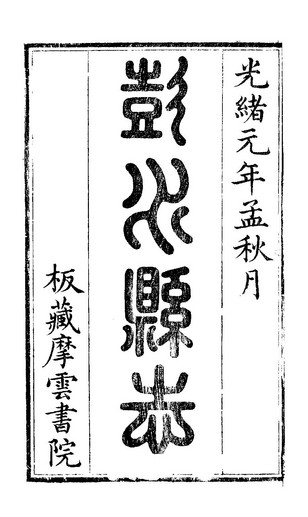 光緒元年孟秋月
彭水縣志
板藏摩雲書院